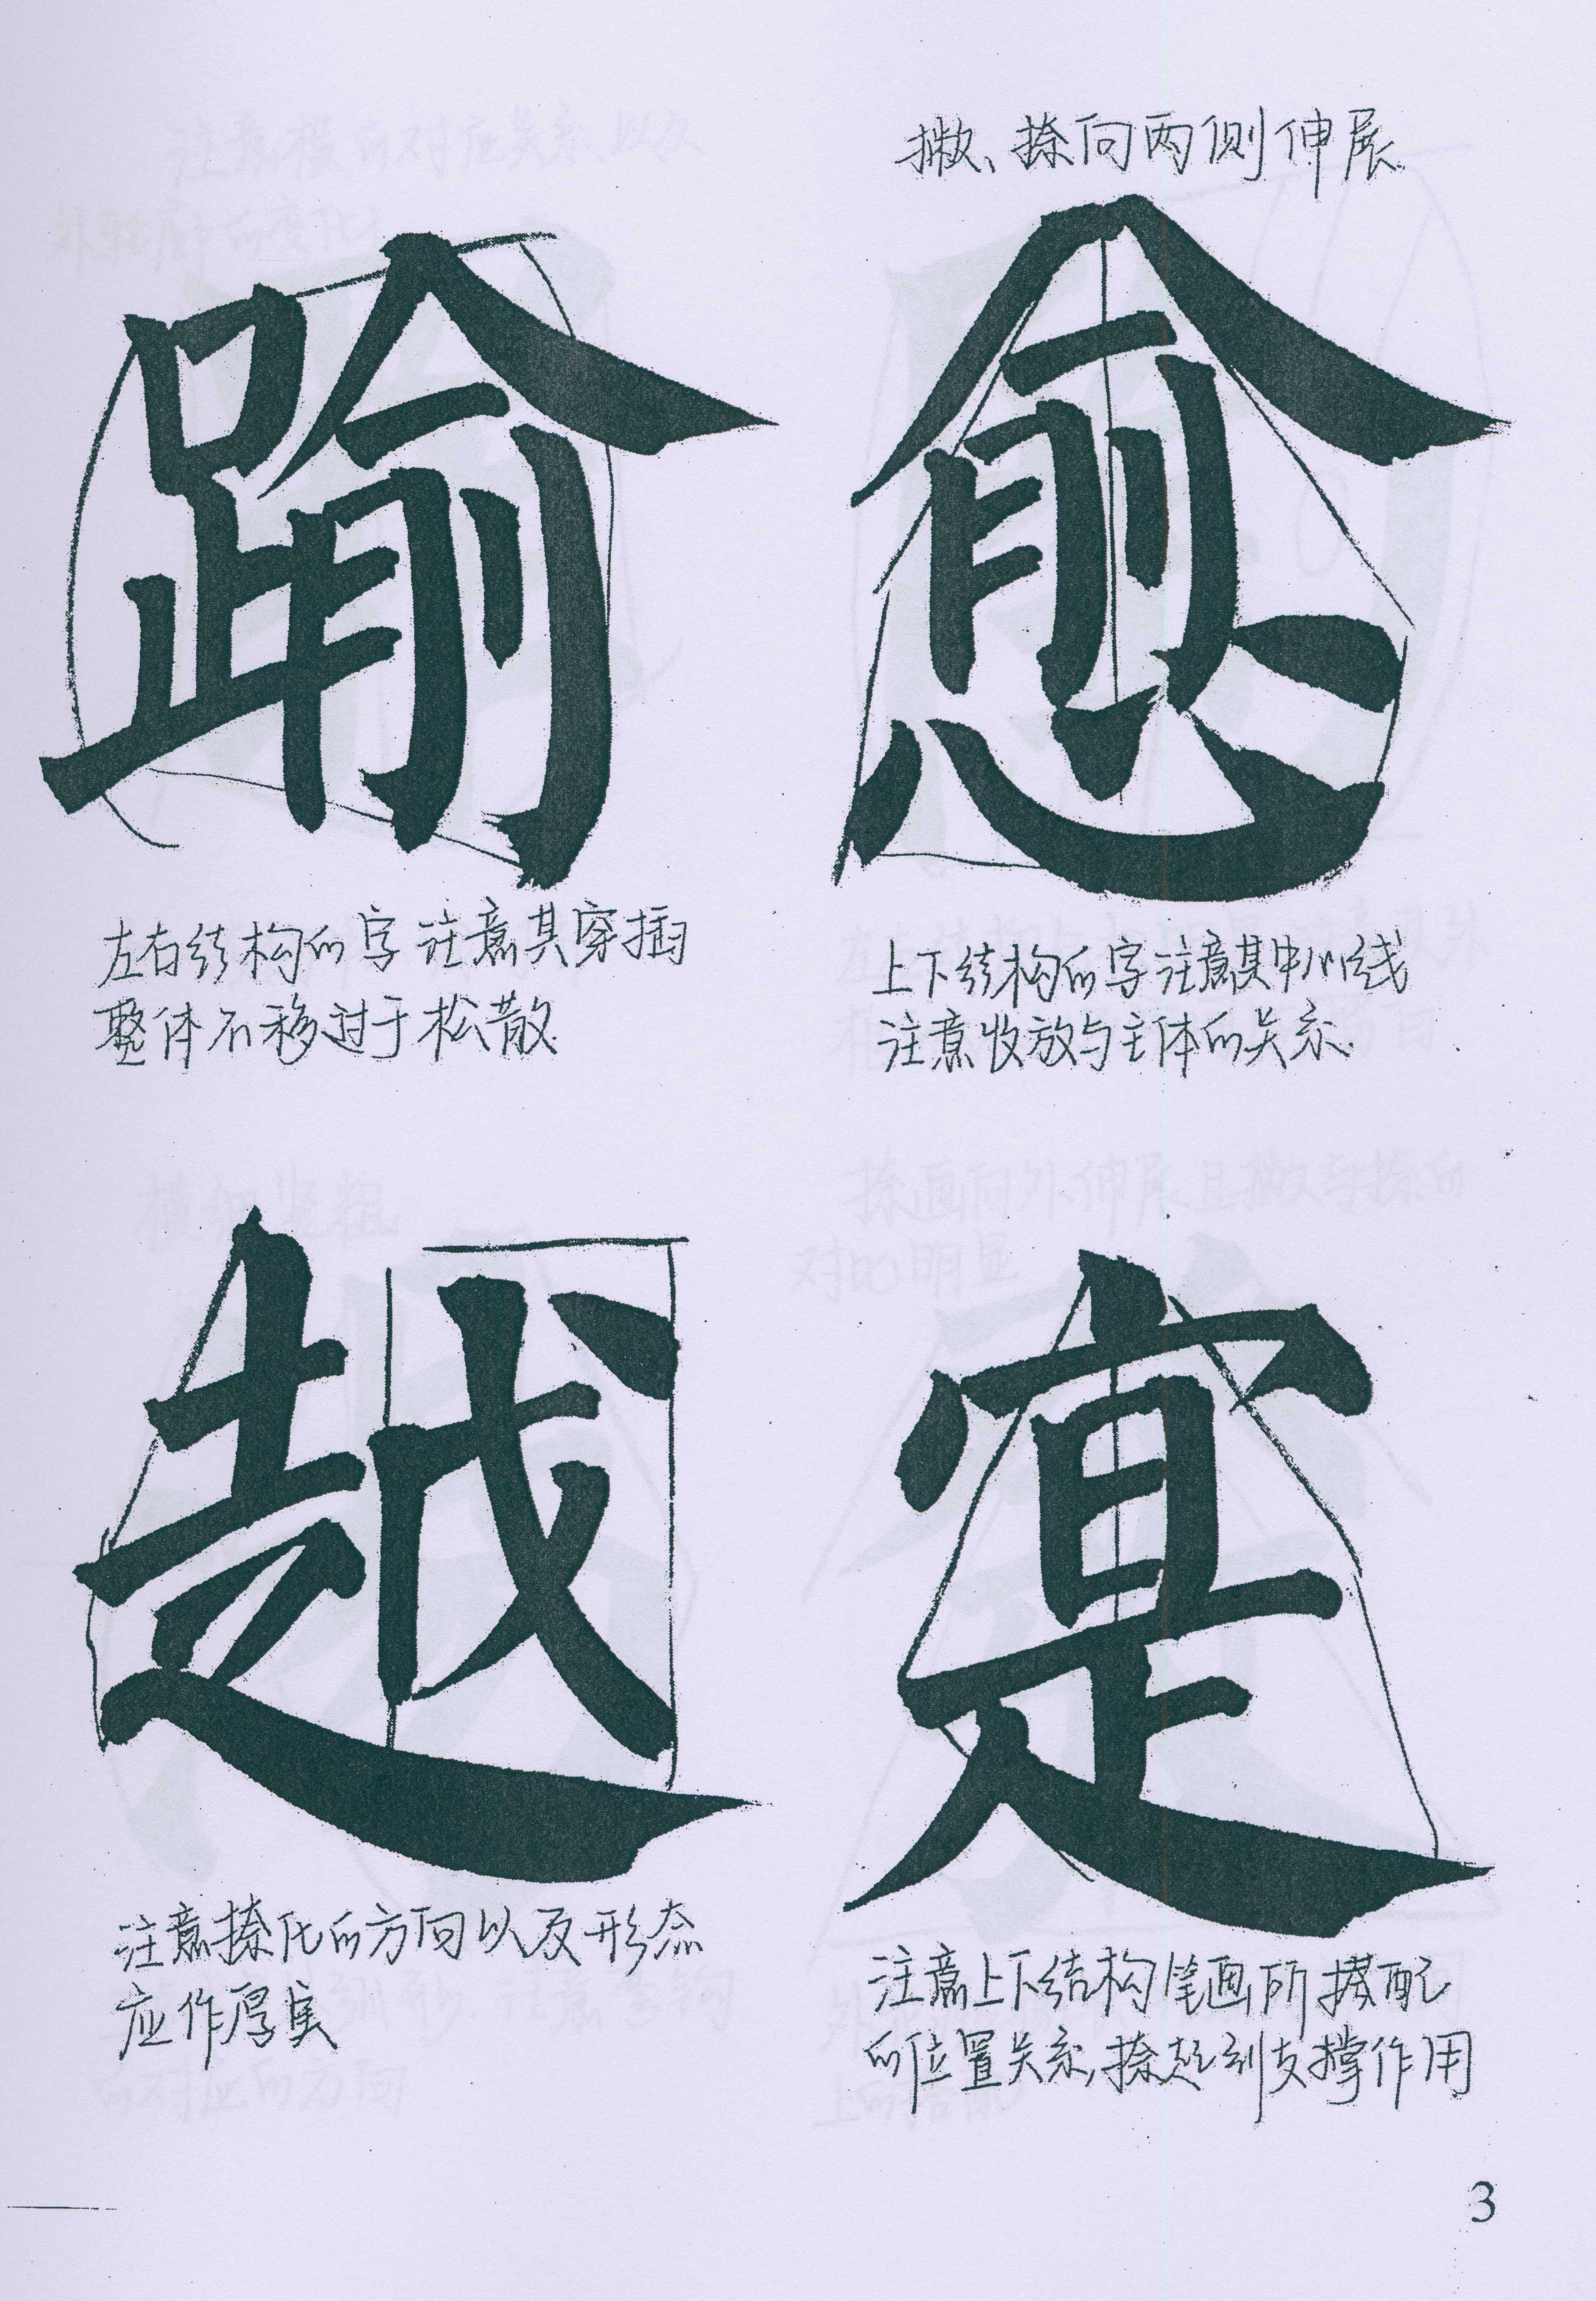 撇、捺向两侧伸展
踰
愈
左右结构的字注意其穿插
整体不移过于松散
上下结构的字注意其中心线
注意收放与主体的关系.
越
寔
注意捺化的方向以及形态
应作厚实
注意上下结构笔画所搭配
的位置关系,捺起到支撑作用
3